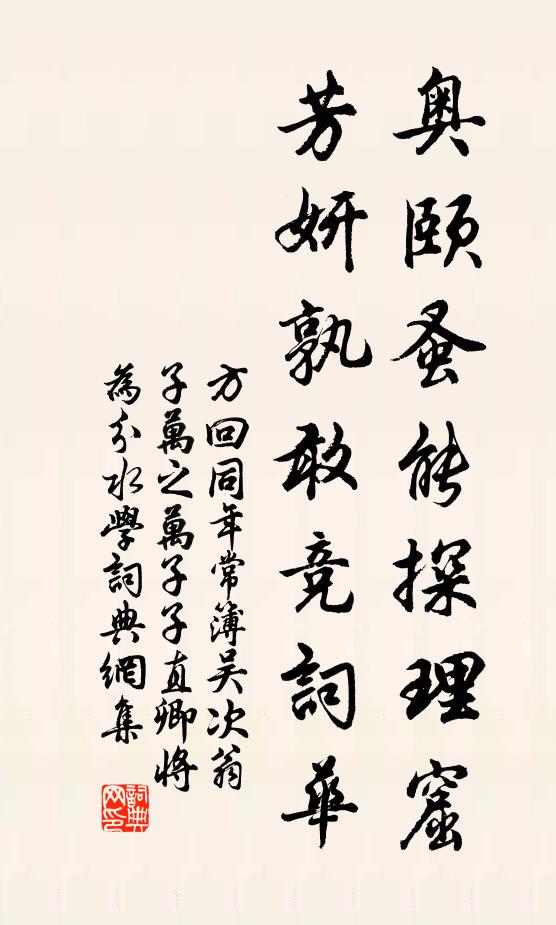 奥頤蚤能探理窟
芳妍孰敢競詞華
方回同年常簿吴次翁
子萬之萬子子直卿將
為分水學詞典網集
詞典网印